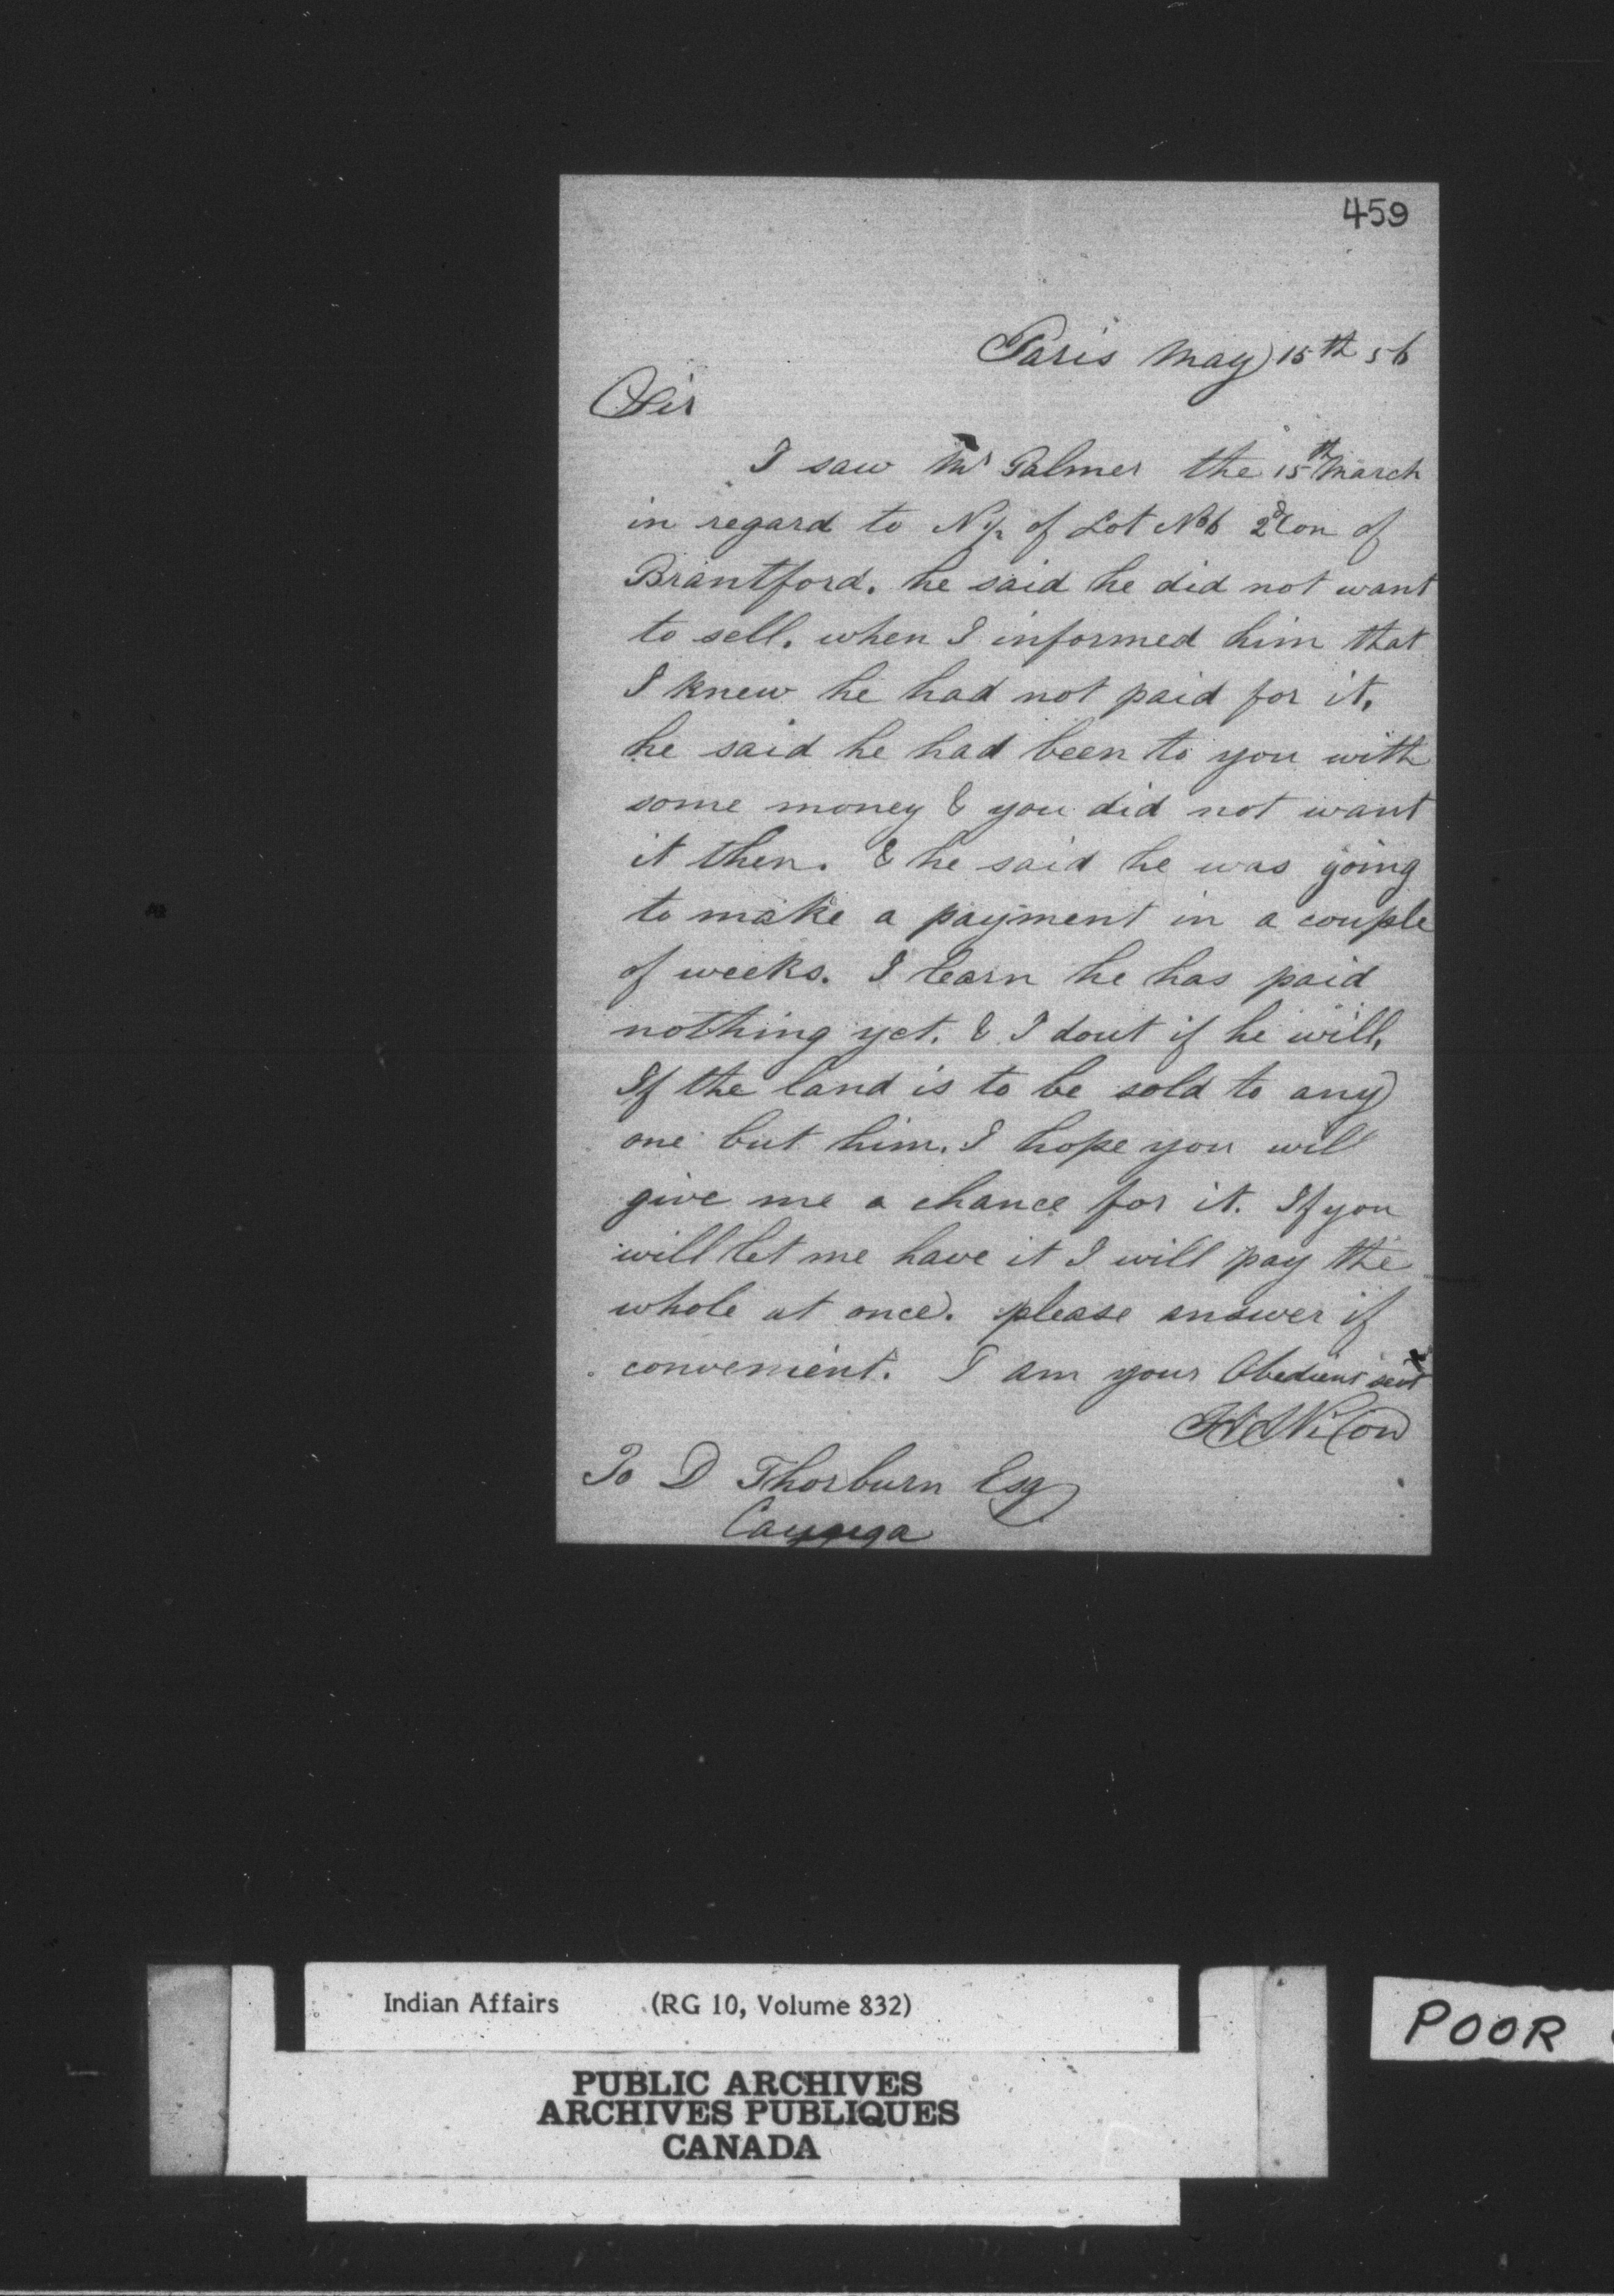 459
Paris May 15th 56
Sir
I saw Mr Palmer the 15th March
in regard to N 1/2 of Lot No 6 2d Con of
Brantford. he said he did not want
to sell. when I informed him that
I knew he had not paid for it,
he said he had been to you with
some money & you did not want
it then. & he said he was going
to make a payment in a couple
of weeks. I learn he has paid
nothing yet. & I dout if he will,
If the land is to be sold to any
one but him. I hope you will
give me a chance for it. If you
will let me have it I will pay the
whole at once. please answer if
convenient. I am your Obedient sert
Nixon
To D Thorburn Esq
Cayuga
Indian Affairs (RG 10, Volume 832)
PUBLIC ARCHIVES
ARCHIVES PUBLIQUES
CANADA
POOR